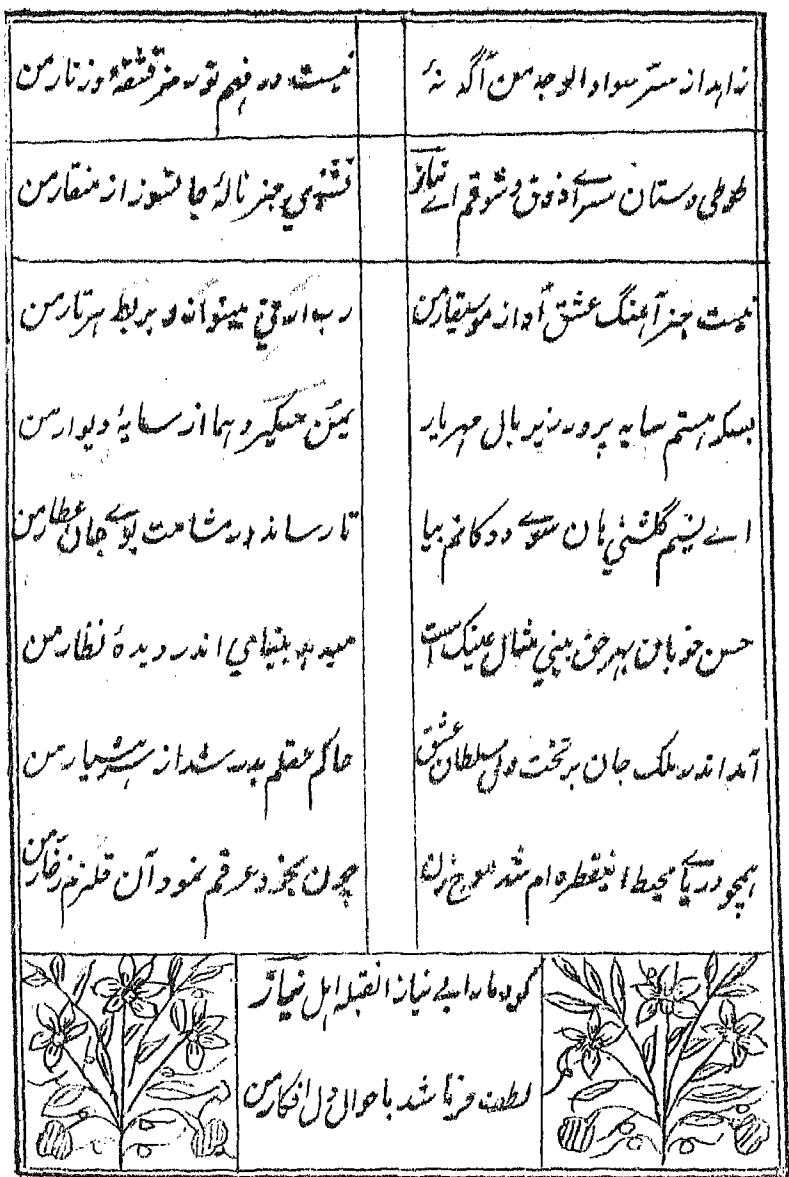 زاہد از سر سواد الوجہ من آگہ نۂ
نیست در فہم تو رمز قشقہ و زنار من
طوطی دستان سراے ذوق و شوقم اے نیاز
نشنوی جز نالۂ جانسوز از منقار من
نیست جز آہنگ عشق آواز موسیقار من
رب ارنی مینوازد بربط ہر تار من
بسکہ ہستم سایہ پرور زیر بال مہر یار
یمن میگیرد ہما از سایۂ دیوار من
اے نسیم گلشنی ہان سوے دوکانم بیا
تا رساند در مشامت بوے جان عطار من
حسن خوبان بہر حق بینی مثال عینک است
میدہد بینایی اندر دیدۂ نظار من
آمد اندر ملک جان بر تخت دل سلطان عشق
حاکم عقلم بدر شد از سر ہشیار من
ہمچو دریاے محیط اینقطرہ ام شد موج زن
چون بخود غرقم نمود آن قلزم زخار من
کرد مارا بے نیاز آنقبلہ اہل نیاز
لطف فرما شد باحوال دل افکار من